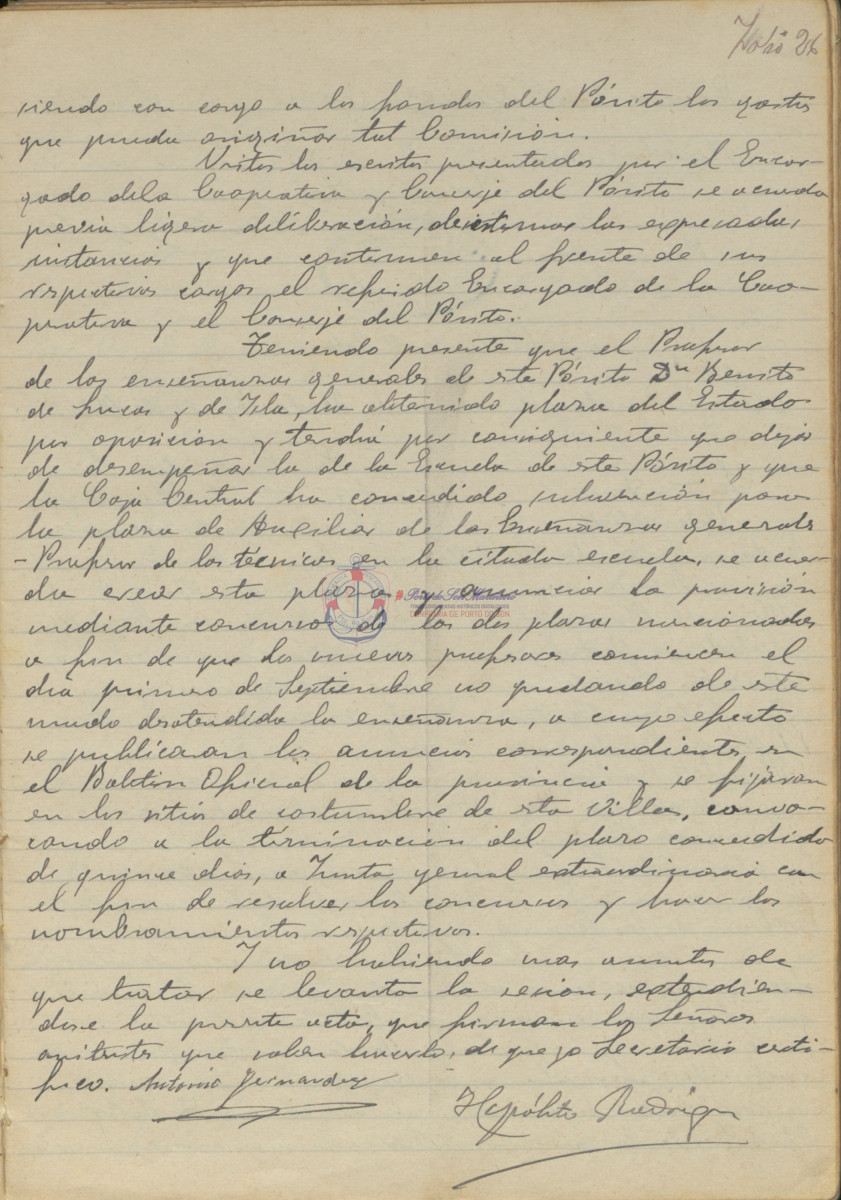 Folio 26
siendo con cargo a los fondos del Pósito los gastos
que pueda originar tal Comisión.
Vistos los escritos presentados por el Encar-
gado dela Cooperativa y Conserje del Pósito se acuerda
previa ligera deliberación, desestimar las expresadas
instancias y que continuen al frente de sus
respectivos cargos el referido Encargado de la Coo-
perativa y el Conserje del Pósito.
Teniendo presente que el Profesor
de las enseñanzas generales de este Pósito Dn Benito
de Lucas y de Isla, ha obtenido plaza del Estado
por oposición y tendrá por consiguiente que dejar
de desempeñar la de la Escuela de este Pósito y que
la Caja Central ha concedido subvención para
la plaza de Auxiliar de las Enseñanzas generales
-Profesor de las técnicas en la citada escuela, se acuer-
da crear esta plaza y anunciar la provisión
mediante concurso de las dos plazas mencionadas
a fin de que los nuevos profesores comiencen el
dia primero de Septiembre no quedando de este
modo desatendida la enseñanza, a cuyo efecto
se publicaran los anuncios correspondientes en
el Boletin Oficial de la provincia y se fijaran
en los sitios de costumbre de esta Villa, convo-
cando a la terminación del plazo concedido
de quince dias, a Junta general extraordinaria con
el fin de resolver los concursos y hacer los
nombramientos respectivos.
Y no habiendo mas asuntos de
que tratar se levanta la sesion, extendien-
dose la presente acta, que firman los Señores
asistentes que saben hacerlo, de que yo Secretario certi-
fico. Antonio Fernandez
Hipólito Rodrigu